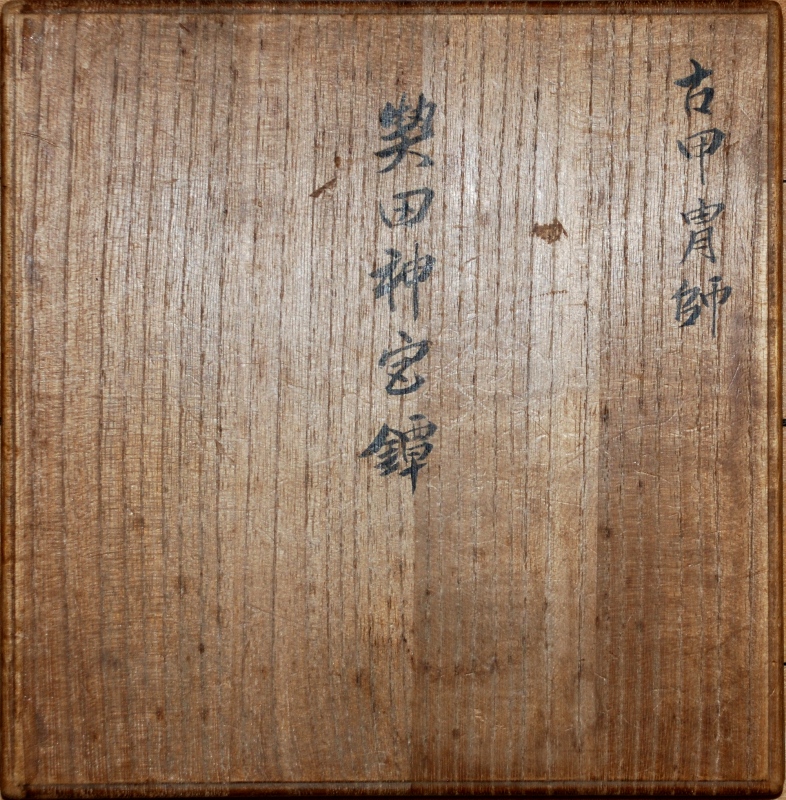 古甲冑師
熱田神宮鐔